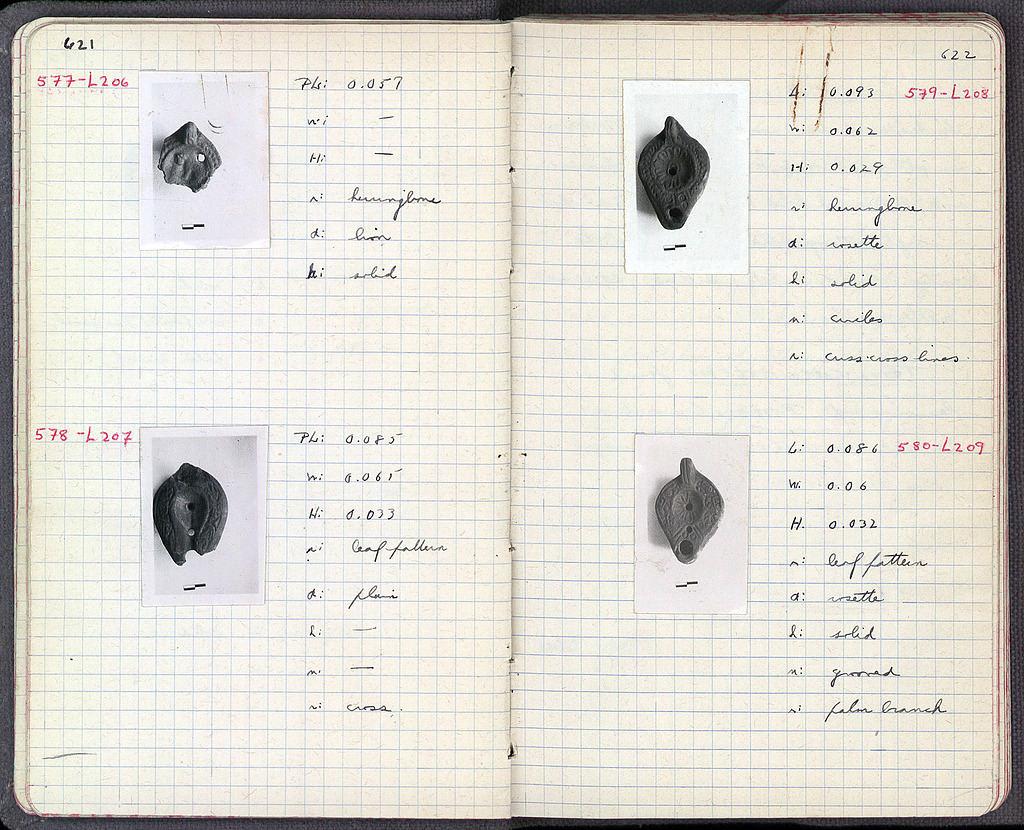 621
577-L206
PL: 0.057
W: —
H: —
r: herringbone
d: lion
h: solid
578-L207
PL: 0.085
W: 0.065
H: 0.033
r: leaf pattern
d: plain
h: —
n: —
r: cross.
622
L: 0.093 579-L208
W: 0.062
H: 0.029
r: herringbone
d: rosette
h: solid
n: circles
r: criss-cross lines.
L: 0.086 580-L209
W. 0.06
H. 0.032
r: leaf pattern
d: rosette
h: solid
n: grooved
r: palm branch